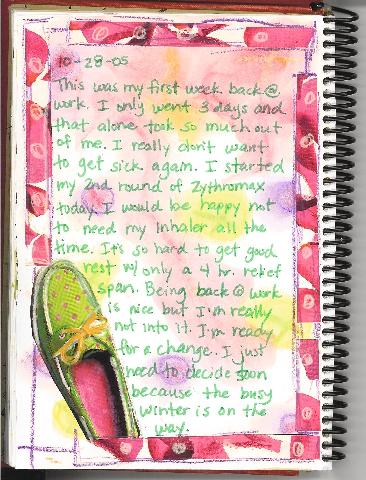 10-28-05
This was my first week back@
work. I only went 3 days and
that alone took so much out
of me. I really don't want
to get sick again. I started
my 2nd round of Zythromax
today. I would be happy not
to need my inhaler all the
time. It's so hard to get good
rest w/ only a 4 hr. relief
span. Being back@ work
is nice but I'm really
not into it. I'm ready
for a change. I just
need to decide soon
because the busy
winter is on the
way.